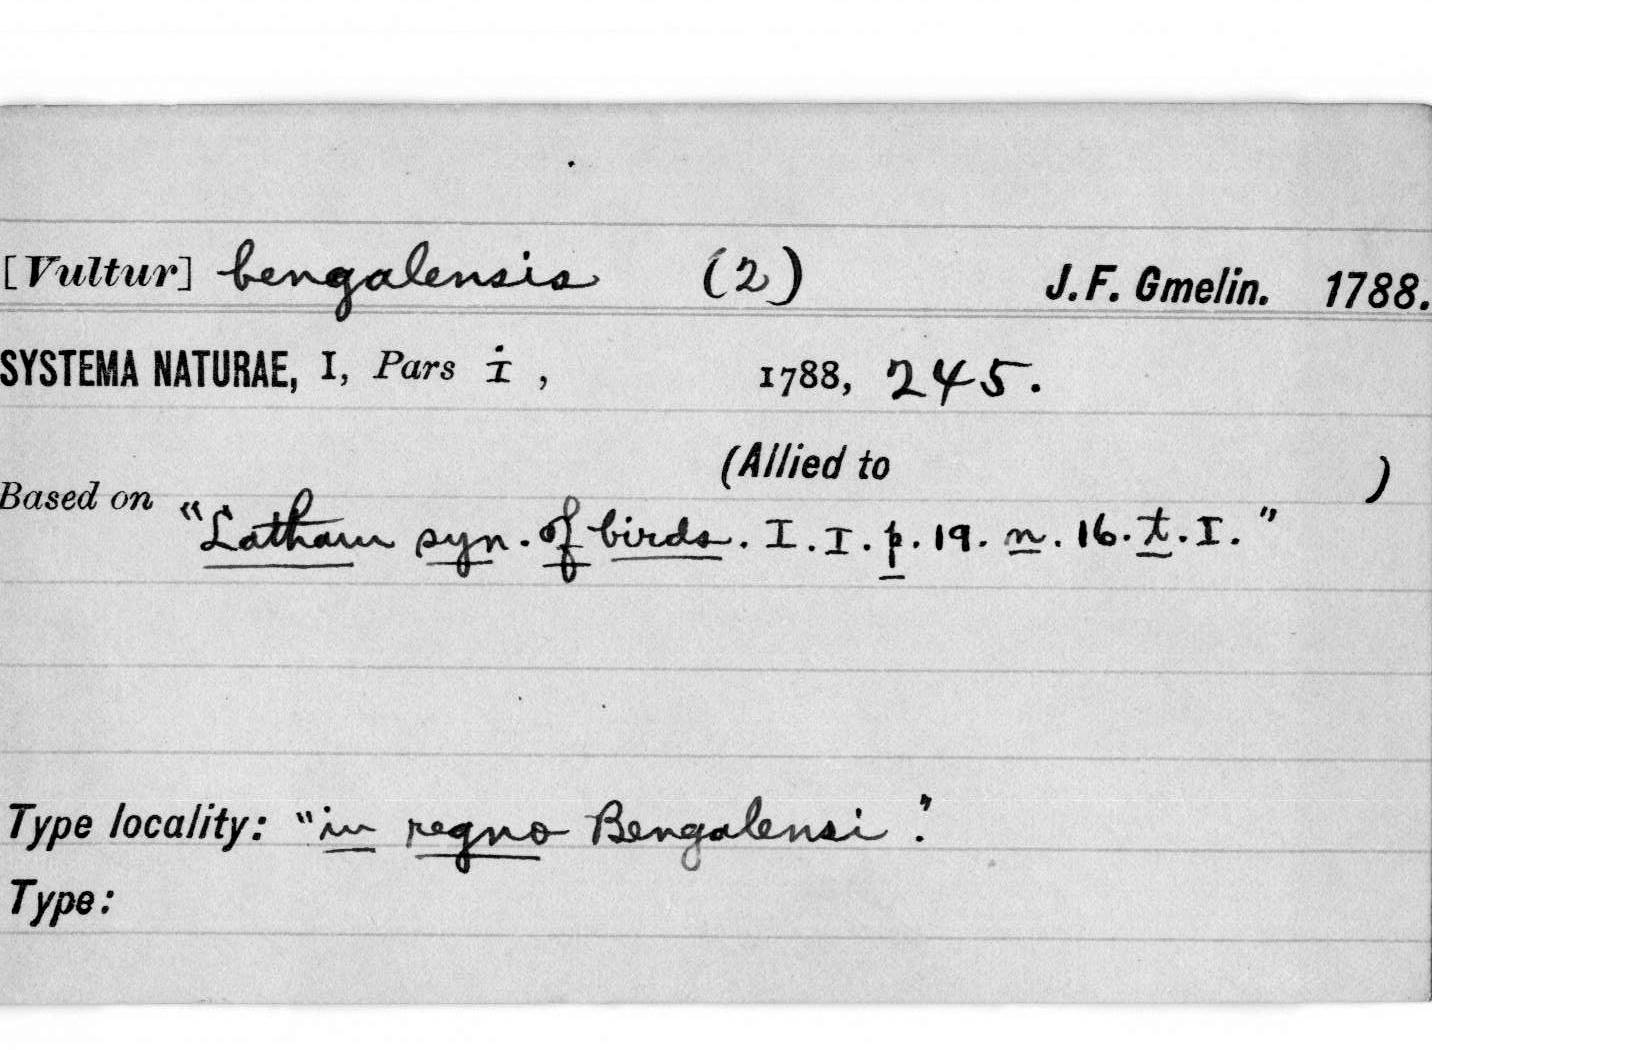 [Vultur] bengalensis (2) J.F. Gmelin. 1788.
SYSTEMA NATURAE, I, Pars i, 1788, 245.
(Allied to )
Based on "Latham syn. of birds. I. I. p. 19. n. 16. t. I."
Type locality: "in regno Bengalensi."
Type: